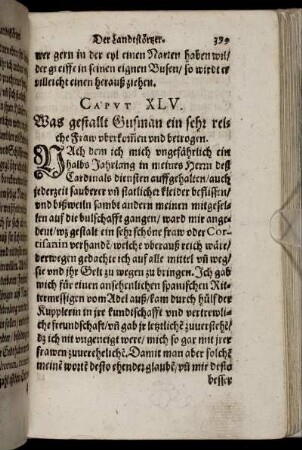 Der Landtstörtzer.
wer gern in der eyl einen Narren haben wil/
der greiffe in seinen eignen Busen/ so wirdt er
villeicht einen herauß ziehen.
CAPVT XLV.
Was gestallt Gusman ein sehr reis
che Fraw vberkom̃en vnd betrogen.
NAch dem ich mich vngefährlich ein
halbs Jahrlang in meines Herrn deß
Cardinals diensten auffgehalten/ auch
jederzeit sauberer vñ statlicher kleider beflissen/
vnd bißweiln sambt andern meinen mitgesel-
len auf die bulschafft gangen/ ward mir ange-
deut/ wz gestalt ein sehr schöne fraw oder Cor-
tisanin verhandẽ/ welche vberauß reich wäre/
derwegen gedachte ich auf alle mittel vñ weg/
sie vnd jhr Gelt zu wegen zu bringen. Ich gab
mich für einen ansehenlichen spanischen Rit-
termessigen vom Adel auß/ kam durch hülf der
Kupplerin in jer kundtschafft vnd vertrewli-
che freundschafft/ vñ gab jr letztlichẽ zuuersteht/
dz ich nit vngeneigt were/ mich so gar mit jrer
frawen zuuerehelichẽ. Damit man aber solchẽ
meinẽ wortẽ desto ehender glaubẽ/ vñ mir desto
besser